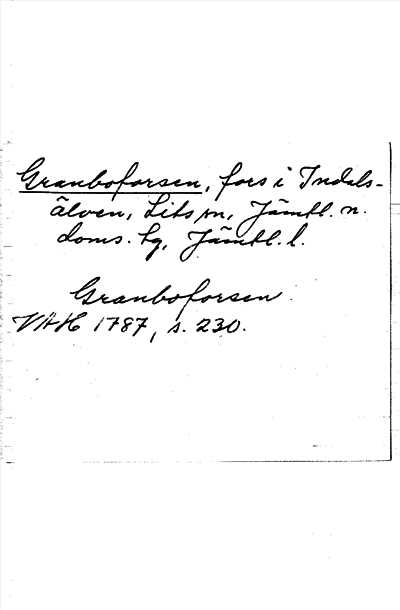 Granboforsen, fors i Indals-
älven, Lits sn, Jämtl. n.
doms. tg, Jämtl. l.
Granboforsen
VAH 1787, s. 230.